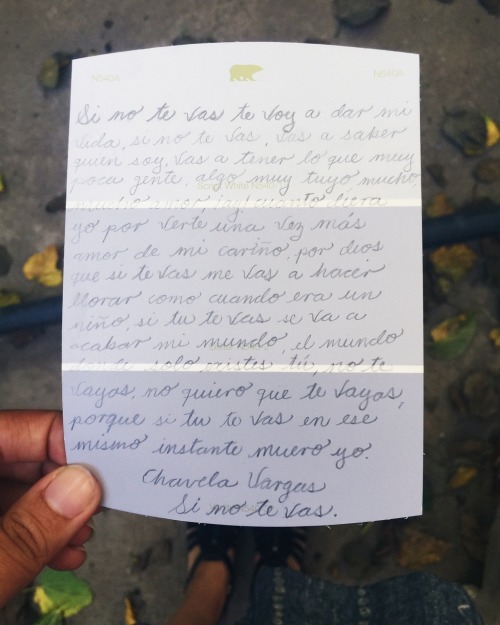 N540A N540A
Si no te vas te voy a dar mi
vida, si no te vas, vas a saber
quien soy, vas a tener lo que muy
poca gente, algo muy tuyo mucho,
mucho amor ¡ay! cuanto diera
yo por verte una vez más
amor de mi cariño, por dios
que si te vas me vas a hacer
llorar como cuando era un
niño, si tu te vas se va a
acabar mi mundo, el mundo
donde solo existes tú, no te
vayas, no quiero que te vayas,
porque si tu te vas en ese
mismo instante muero yo.
Chavela Vargas
Si no te vas.